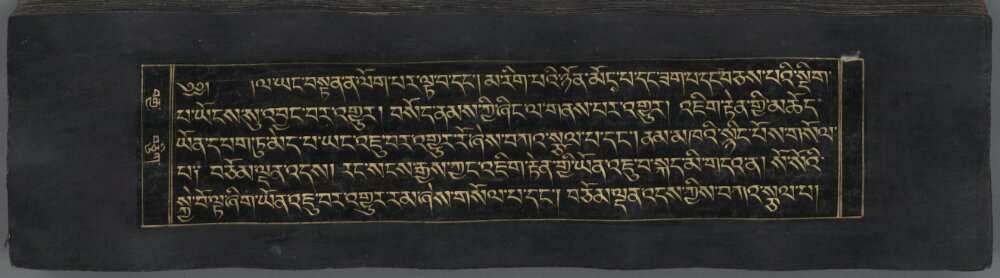 ༄༅། །ལ་ཡང་བསྟན་ན་ལོག་པར་ལྟ་བ་དང་། མ་རིག་པའི་ཉོན་མོང་པ་དང་ཟག་པ་དང་བཅས་པའི་སྲིག་
པ་ཡོངས་སུ་འབྱང་བར་འགྱུར། བསོད་ནམས་ཀྱི་ཞིང་ལ་གནས་པར་འགྱུར། འཇིག་རྟེན་གྱི་མ་ཆོད་
ཡོན་དཔག་ཏུ་མེད་པ་ཡང་འཇུ་བར་འགྱུར་རོ་ཞེས་བཀའ་སྩལ་པ་དང་། ནམ་མཁའི་སྙིང་པོས་གསོལ་
པ། བཅོམ་ལྡན་འདས། རང་སངས་རྒྱས་ཀྱང་འཇིག་རྟེན་གྱི་ཡོན་འཇུ་བ་སྐད་མི་གདའ་ན། སོ་སོའི་
སྐྱེ་བོ་ལྟ་ཞིག་ཡོན་འཇུ་བར་འགྱུར་རམ་ཞེས་གསོལ་པ་དང་། བཅོམ་ལྡན་འདས་ཀྱིས་བཀའ་སྩལ་པ།